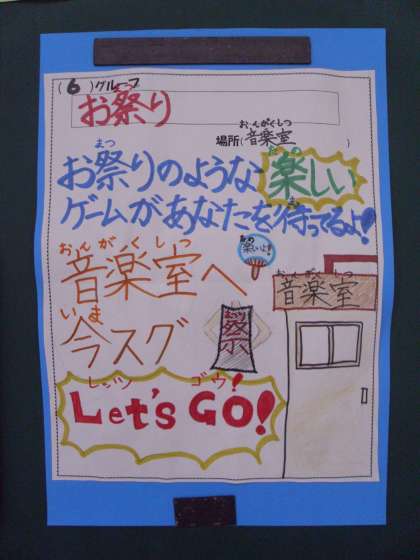 (6)グループ
お祭り
おんがくしつ
場所(音楽室)
まつ
お祭りのような楽しい
ま
ゲームがあなたを待ってるよ!
楽しいよ!
おんがくしつ
音楽室へ
いま
今スグ
祭
おんがくしつ
音楽室
レッツ ゴウ!
Let's GO!